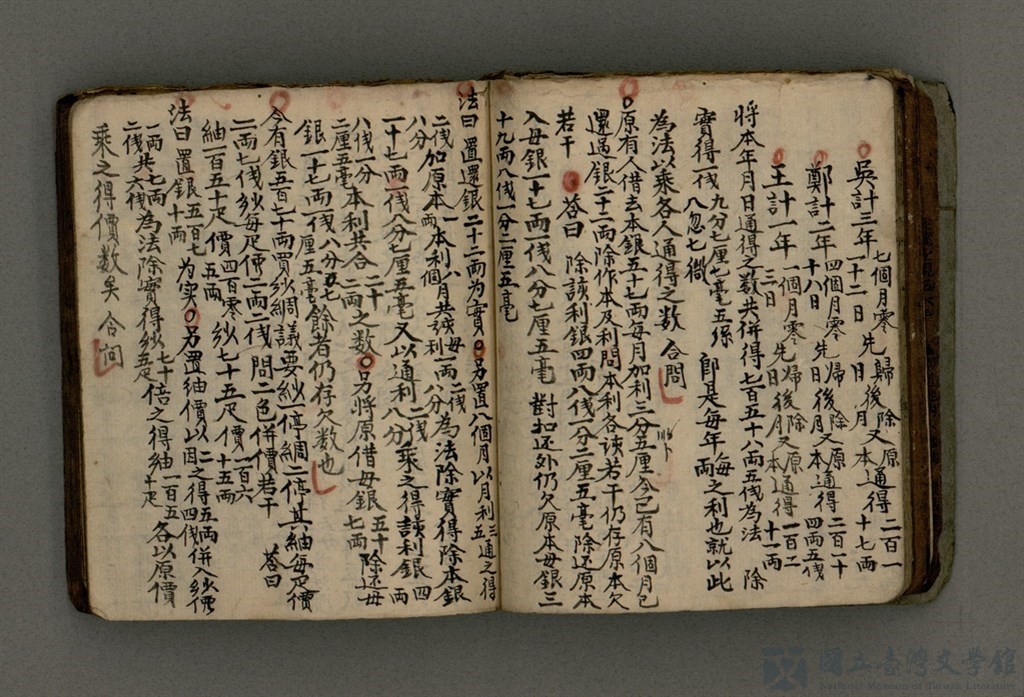 吳計三年七個月零一十二日先歸後除又原本通得二百一十七兩
鄭計二年四個月零十八日先歸後除又原本通得二百一十四兩五戋
王計一年一個月零三日先歸後除又原本通得一百二十一兩
將本年月日通得之數共併得七百五十八兩五戋為法除
實得一戋九分七厘七毫五絲八忽七微 即是每年每兩之利也就以此
為法以乘各人通得之數 合問
原有人借去本銀五十七兩每月加利三分五厘今已有八個月已
還過銀二十二兩除作本及利問本利各該若干仍存原本欠
若干 答曰 除該利銀四兩八戋一分二厘五毫除還原本
入母銀一十七兩一戋八分七厘五毫 對扣还外仍欠原本母銀三
十九兩八戋一分二厘五毫
法曰置還銀二十二兩為實另置八個月以月利三五通之得
二戋八分加原本一兩本利八個月共該母利一兩二戋八分為法除實得除本銀
一十七兩一戋八分七厘五毫又以通利二戋八分乘之得該利銀四兩
八戋一分二厘五毫本利共合二十二兩之數另將原借母銀五十七兩除还母
銀一十七兩一戋八分七厘五毫餘者仍存欠数也
今有銀五百七十兩買紗綢議要紗一停綢二停其紬每疋價
二兩七戋紗每疋價二兩二戋問二色併價若干 答曰
紬一百五十疋價四百零五兩紗七十五疋價一百六十五兩
法曰置銀五百七十兩為实另置紬價以二因之得五兩四戋併入紗價
二兩二戋共七兩六戋為法除實得紗七十五疋倍之得紬一百五十疋各以原價
乘之得價數矣 合問
國立臺灣文學館
National Museum of Taiwan Literature